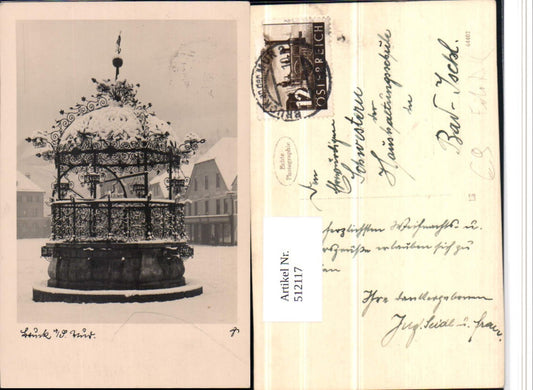 Bruck a/d. Mur.
12 GROSCHEN
ÖSTERREICH
Echte
Photographie
44402
Den
Ehrwürdigen
Schwestern
der
Haushaltungsschule
in
Bad-Ischl.
Artikel Nr.
512117
herzlichsten Weihnachts- u.
erlauben sich zu
Ihre dankergebenen
Ing. Seidl u. Frau.